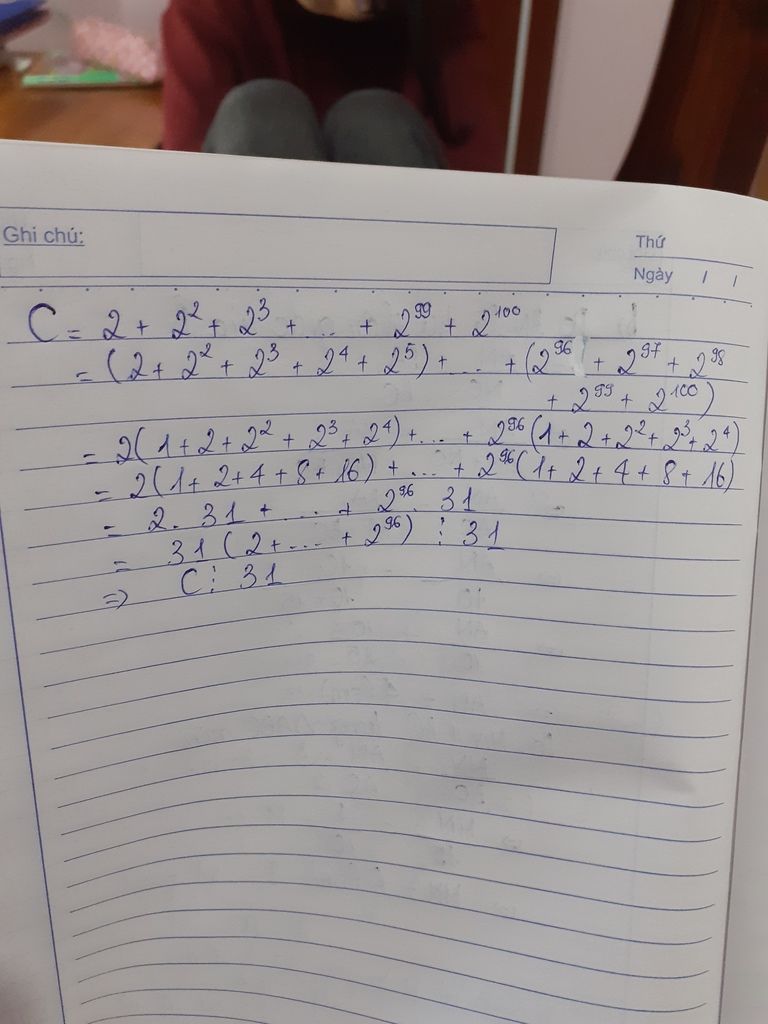 Ghi chú:
Thứ
Ngày / /
C = 2 + 2² + 2³ + ... + 2⁹⁹ + 2¹⁰⁰
= (2 + 2² + 2³ + 2⁴ + 2⁵) + ... + (2⁹⁶ + 2⁹⁷ + 2⁹⁸
+ 2⁹⁹ + 2¹⁰⁰)
= 2(1 + 2 + 2² + 2³ + 2⁴) + ... + 2⁹⁶(1 + 2 + 2² + 2³ + 2⁴)
= 2(1 + 2 + 4 + 8 + 16) + ... + 2⁹⁶(1 + 2 + 4 + 8 + 16)
= 2 . 31 + ... + 2⁹⁶ . 31
= 31(2 + ... + 2⁹⁶) ⋮ 31
=> C ⋮ 31